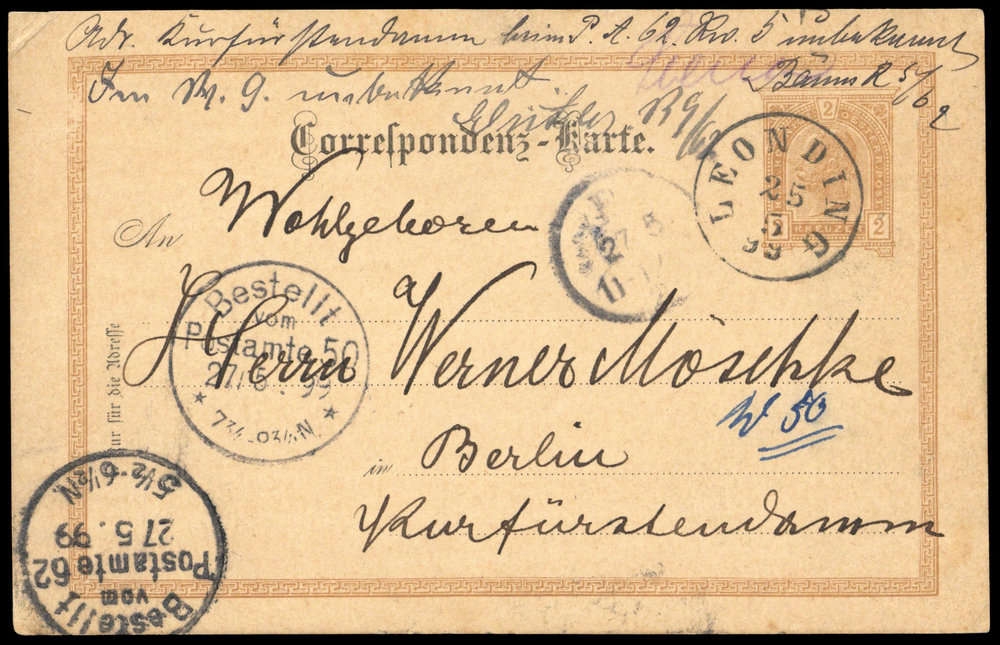 Adr. Kurfürstendamm beim P. A. 62. Rv. 5 unbekannt
Bäum R 5/62
Im W. 9. unbekannt
R9/62
Correspondenz-Karte.
2
2
KREUZER
LEONDING
25
5
99
An
Wohlgeboren
27 5
Bestellt
vom
Postamte 50
27/5. 99
7¾-0¾N
Herrn Werner Möschke
W 50
in Berlin
Kurfürstendamm
nur für die Adresse
Bestellt
vom
Postamte 62
27 5. 99
5½-6½N.